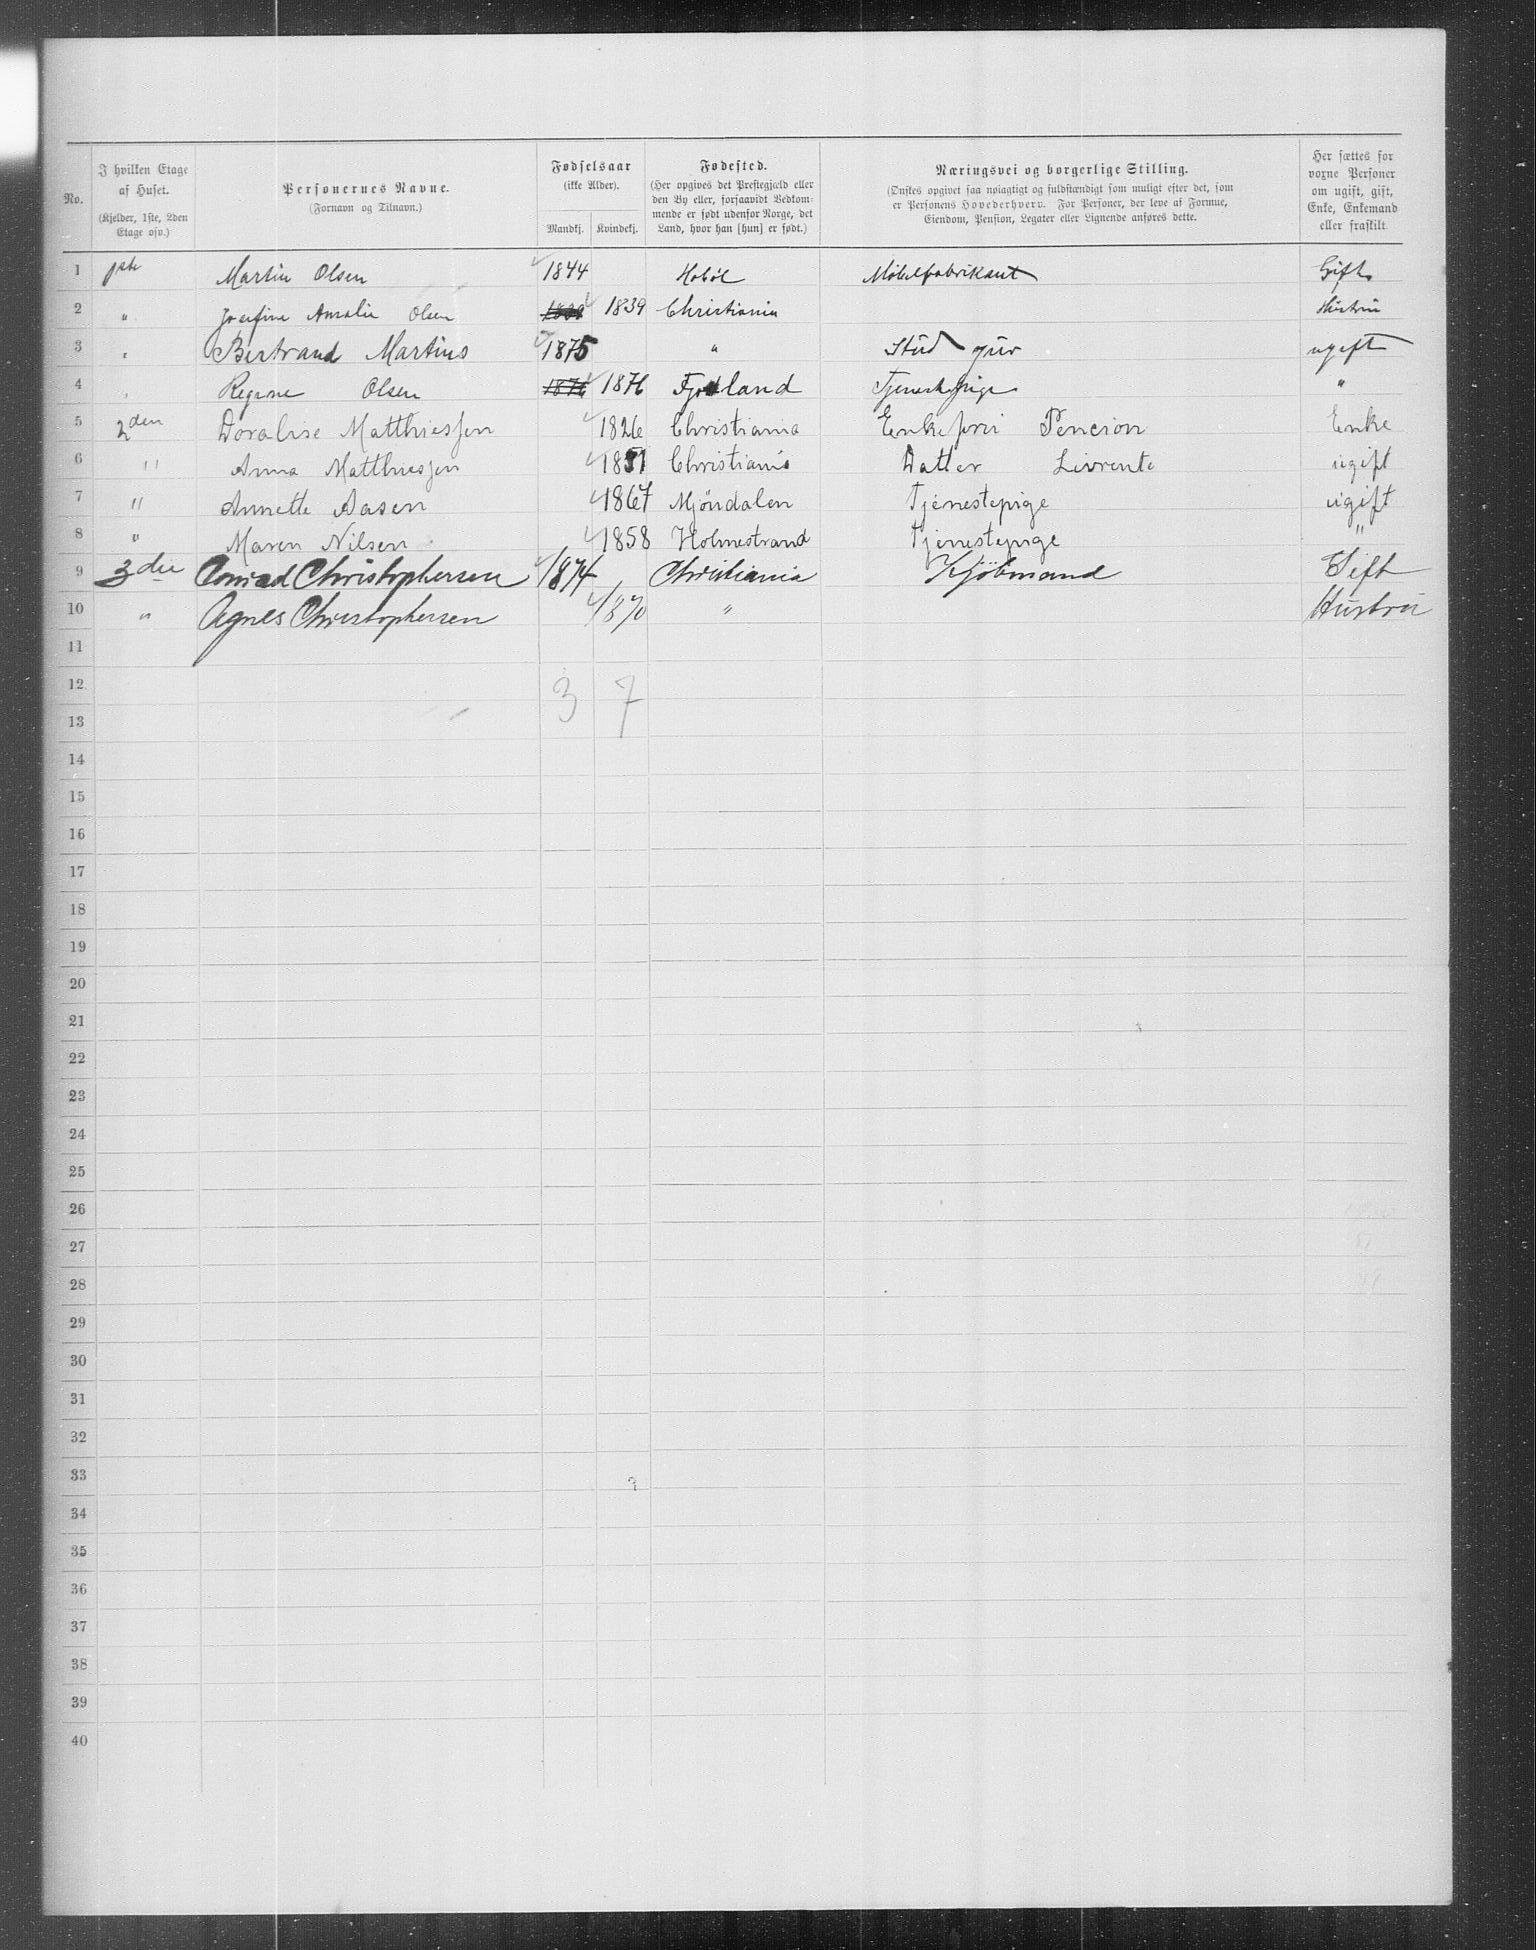 No.	I hvilken Etage af Huset. (Kjelder, 1ste, 2den Etage osv.)	Personernes Navne. (Fornavn og Tilnavn.)	Fødselsaar (ikke Alder). Mandkj. Kvindekj.	Fødested. (Her opgives det Prestegjæld eller den By eller, forsaavidt Vedkommende er født udenfor Norge, det Land, hvor han [hun] er født.)	Næringsvei og borgerlige Stilling. (Ønskes opgivet saa nøiagtigt og fuldstændigt som muligt efter det, som er Personens Hovederhverv. For Personer, der leve af Formue, Eiendom, Pension, Legater eller Lignende anføres dette.	Her sættes for voxne Personer om ugift, gift, Enke, Enkemand eller fraskilt.
1 1ste Martin Olsen 1844 Hobøl Møbelfabrikant Gift
2 " Josefine Amalie Olsen 1839 Christiania Hustru
3 " Bertrand Martins 1875 " Stud jur ugift
4 " Regine Olsen 1876 Tjenestepige "
5 2den Doralise Matthiessen 1826 Christiania Enkefru Pencion Enke
6 " Anna Matthiessen 1851 Christiania Datter Livrente ugift
7 " Annette Aasen 1867 Mjöndalen Tjenestepige ugift
8 " Maren Nilsen 1858 Holmestrand Tjenestepige "
9 3die Conrad Christophersen 1874 Christiania Kjöbmand Gift
10 " Agnes Christophersen 1870 " Hustru
11
12 3 7
13
14
15
16
17
18
19
20
21
22
23
24
25
26
27
28
29
30
31
32
33
34
35
36
37
38
39
40